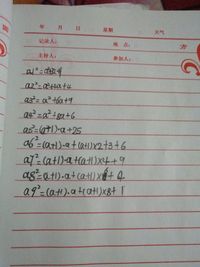 年 月 日 星期 天气
记录人: 地点:
主持人: 参加人:
a2²=a²+4a+4
a3²=a²+6a+9
a4²=a²+8a+6
a5²=(a+1)·a+25
a6²=(a+1)·a+(a+1)×2+3+6
a7²=(a+1)·a+(a+1)×4+9
a8²=(a+1)·a+(a+1)×6+4
a9²=(a+1)·a+(a+1)×8+1